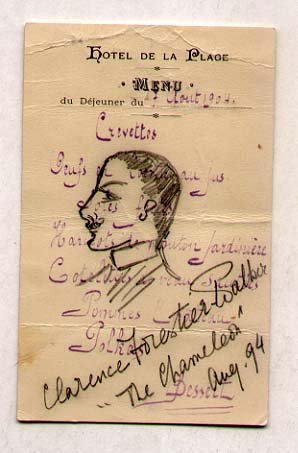 HOTEL DE LA PLAGE
MENU
du Déjeuner du Août 1904.
Crevettes
Oeufs au jus
Soles
Haricots de mouton jardinière
Cotelettes de veau
Pommes
Dessert
Clarence Forestier-Walker
"The Chameleon"
Aug. 94